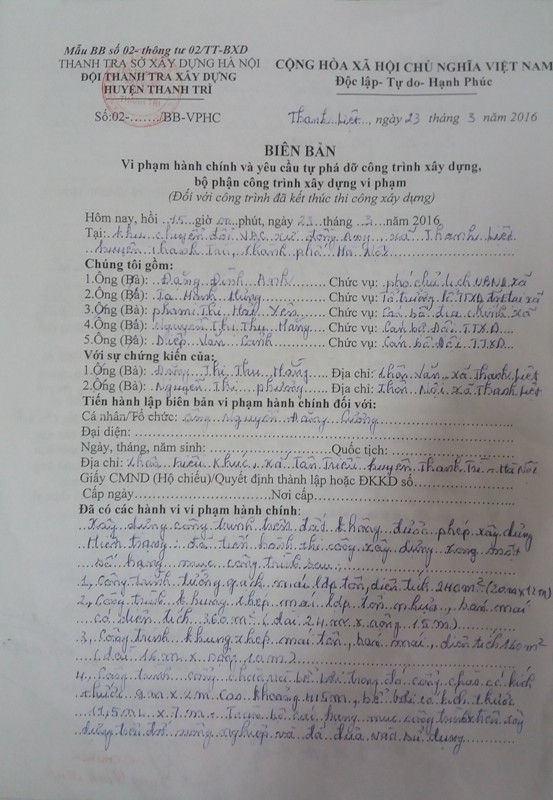 Mẫu BB số 02- thông tư 02/TT-BXD
THANH TRA SỞ XÂY DỰNG HÀ NỘI
ĐỘI THANH TRA XÂY DỰNG
HUYỆN THANH TRÌ
Số:02-......../BB-VPHC
CỘNG HÒA XÃ HỘI CHỦ NGHĨA VIỆT NAM
Độc lập- Tự do- Hạnh Phúc
Thanh Liệt, ngày 23 tháng 3 năm 2016
BIÊN BẢN
Vi phạm hành chính và yêu cầu tự phá dỡ công trình xây dựng,
bộ phận công trình xây dựng vi phạm
(Đối với công trình đã kết thúc thi công xây dựng)
Hôm nay, hồi 15 giờ phút, ngày 23 tháng 3 năm 2016
Tại: Khu chuyển đổi VAC xứ đồng xã Thanh Liệt
huyện Thanh Trì, thành phố Hà Nội
Chúng tôi gồm:
1.Ông (Bà): Đặng Đình Anh Chức vụ: phó chủ tịch UBND xã
2.Ông (Bà): Tạ Mạnh Hùng Chức vụ: Tổ trưởng TTXD xã
3.Ông (Bà): Phạm Thị Hải Yến Chức vụ: Cán bộ địa chính xã
4.Ông (Bà): Nguyễn Thị Thu Hằng Chức vụ: Cán bộ Đội TTXD
5.Ông (Bà): Diệp Văn Chức vụ: Cán bộ Đội TTXD
Với sự chứng kiến của:
1.Ông (Bà): Đặng Thị Thu Hằng Địa chỉ: thôn Văn, xã Thanh Liệt
2.Ông (Bà): Nguyễn Thị Phương Địa chỉ: Thôn Nội, xã Thanh Liệt
Tiến hành lập biên bản vi phạm hành chính đối với:
Cá nhân/Tổ chức: Ông Nguyễn Cường
Đại diện:
Ngày, tháng, năm sinh: Quốc tịch:
Địa chỉ: Thôn Triều Khúc, xã Tân Triều huyện Thanh Trì - Hà Nội
Giấy CMND (Hộ chiếu)/Quyết định thành lập hoặc ĐKKD số
Cấp ngày Nơi cấp
Đã có các hành vi vi phạm hành chính:
Xây dựng công trình trên đất không được phép xây dựng
Hiện trạng: đã tiến hành thi công xây dựng xong một
số hạng mục công trình sau:
1, Công trình tường gạch mái lợp tôn, diện tích 240m² (20m x 12m)
2, Công trình khung thép mái lợp tôn nhựa, bán mái
có diện tích 360m² (dài 24m x rộng 15m)
3, Công trình khung thép mái tôn, bán mái, diện tích 160m²
(dài 16m x rộng 10m)
4, Công trình cổng chào và bể bơi trong đó cổng chào có kích
thước 9m x 2m cao khoảng 4,5m, bể bơi có kích thước
11,5m x 7m. Toàn bộ các hạng mục công trình trên xây
dựng trên đất nông nghiệp và đã đưa vào sử dụng